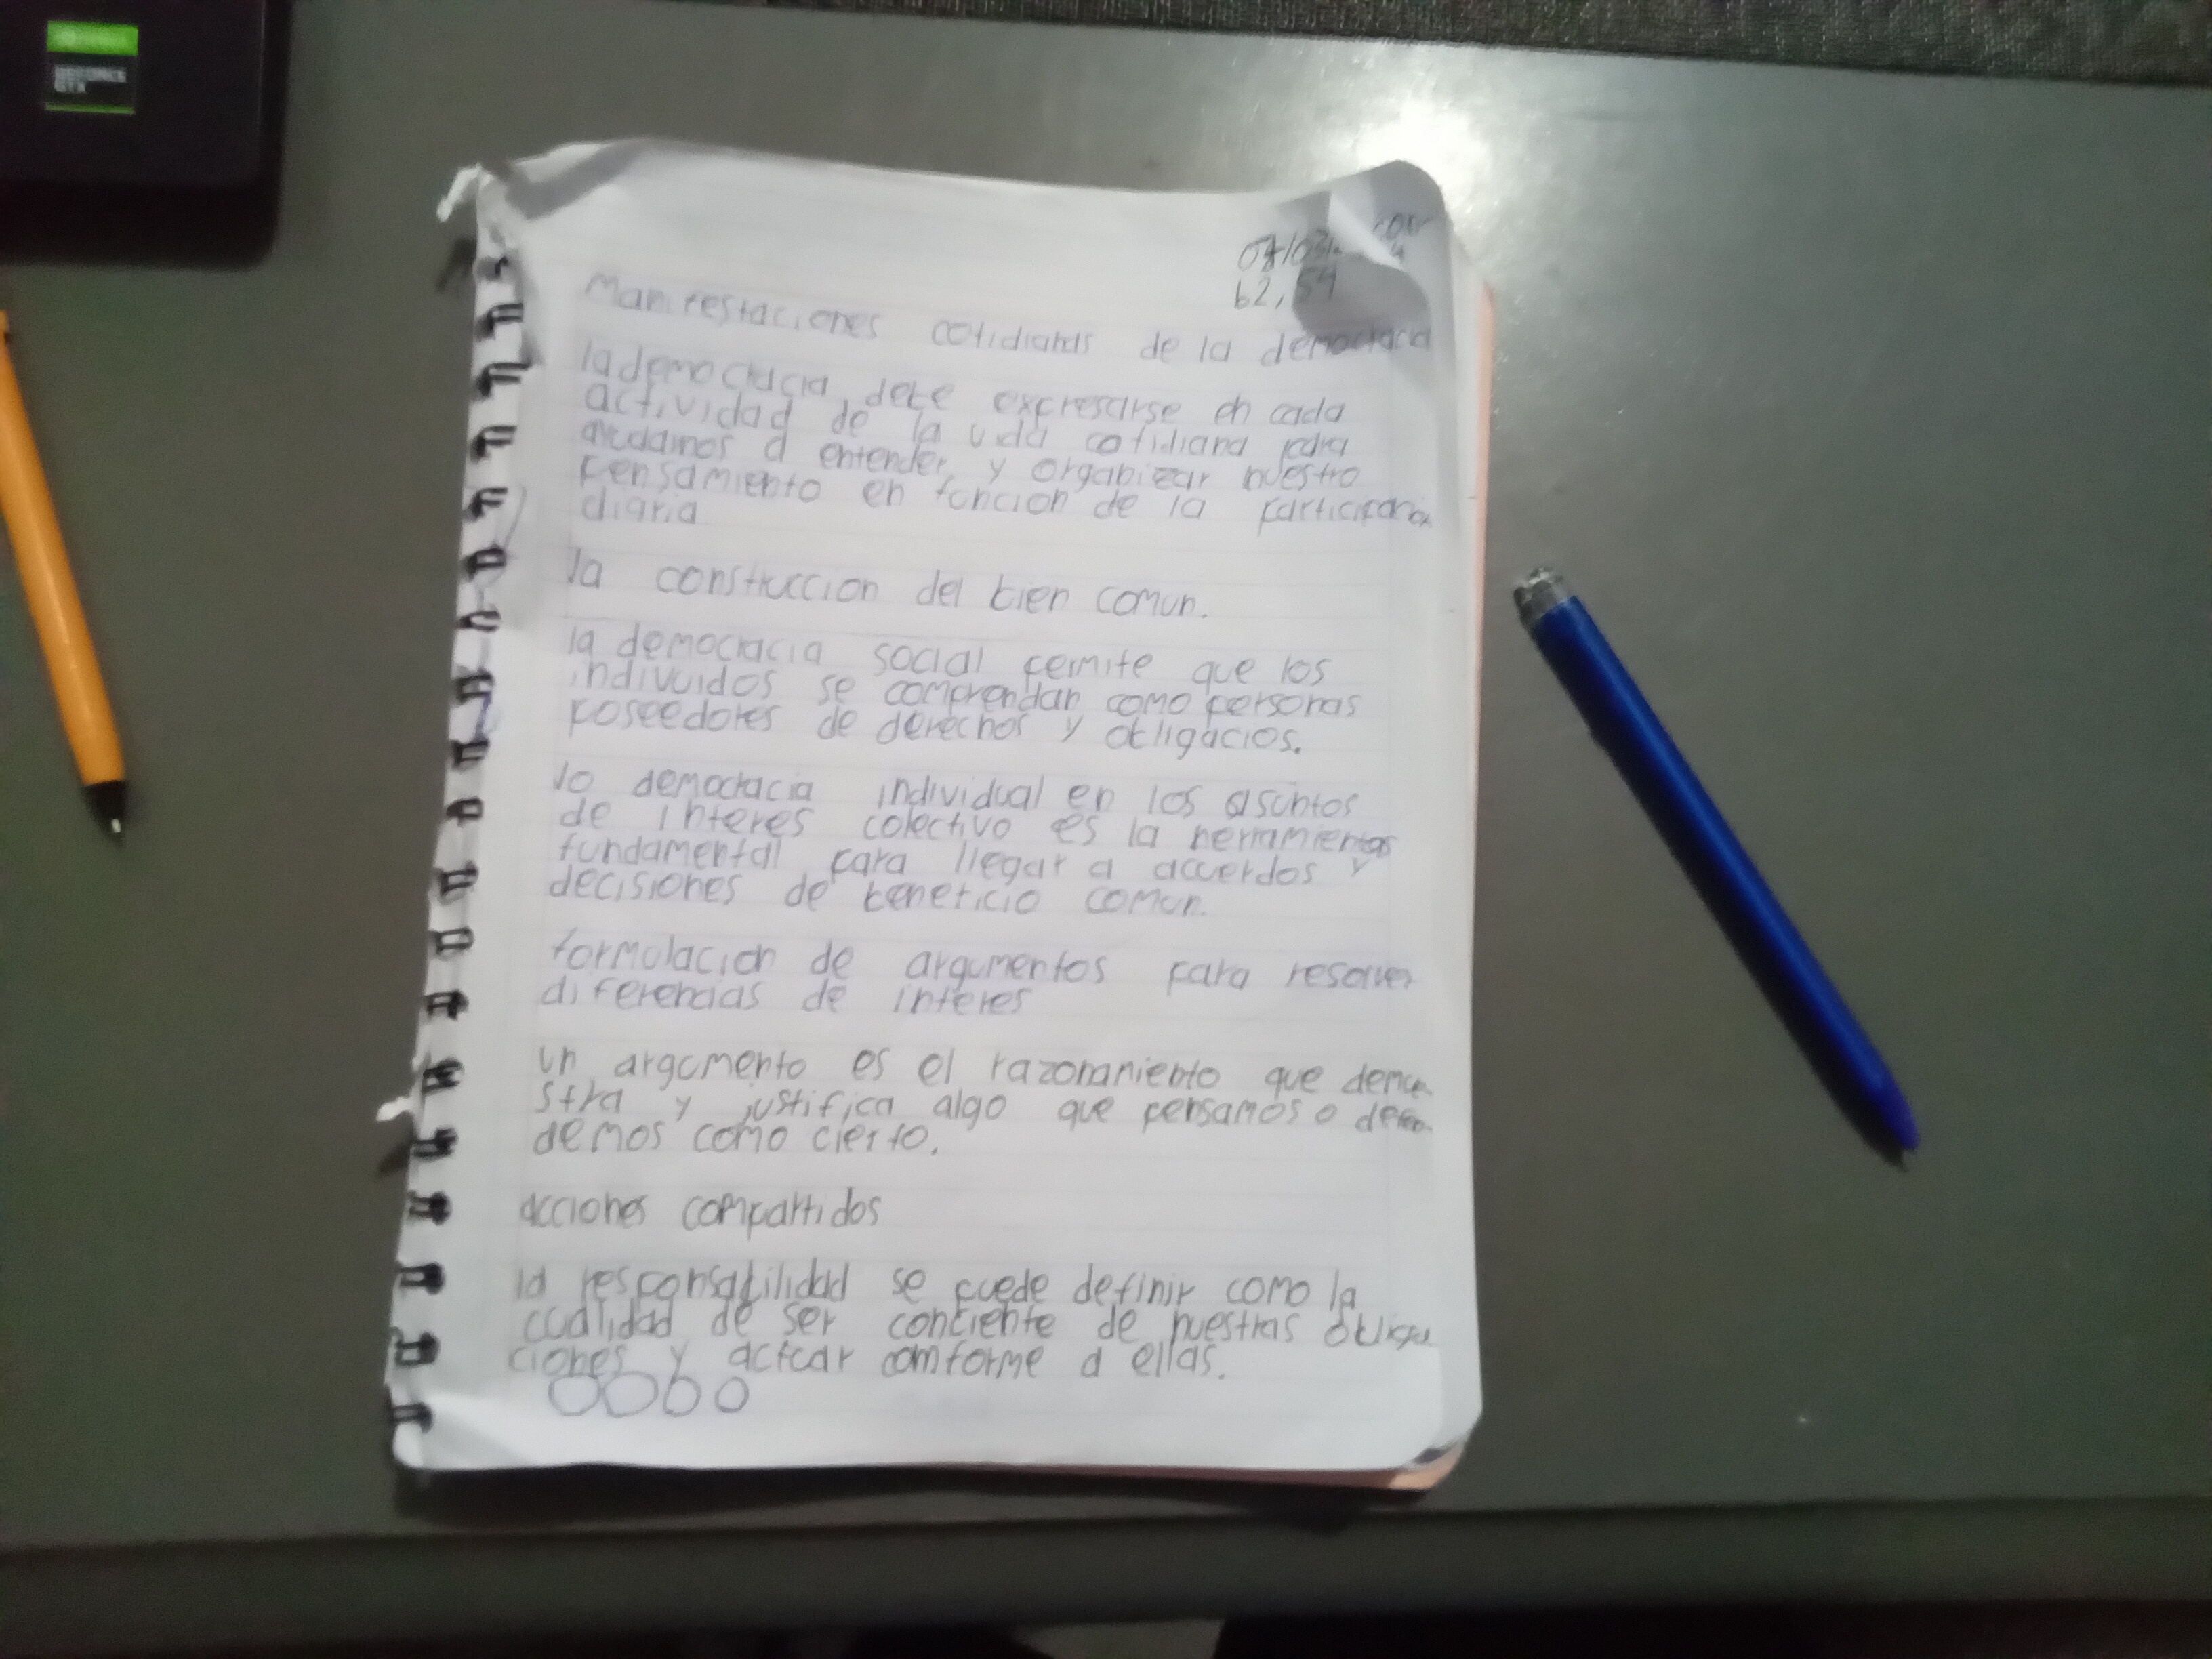 GEFORCE
GTX
62, 54
Manifestaciones cotidianas de la democracia
la democracia debe expresarse en cada
actividad de la vida cotidiana para
ayudarnos a entender y organizar nuestro
pensamiento en funcion de la participacion
diaria
la construccion del bien comun.
la democracia social permite que los
individos se comprendan como personas
poseedores de derechos y obligacios.
lo democracia individual en los asuntos
de interes colectivo es la herramientas
fundamental para llegar a acuerdos y
decisiones de beneficio comun.
formulacion de argumentos para resolver
diferencias de interes
un argumento es el razonamiento que demue-
stra y justifica algo que pensamos o defen-
demos como cierto.
acciones compartidos
la responsabilidad se puede definir como la
cualidad de ser conciente de nuestras obliga
ciones y actuar comforme a ellas.